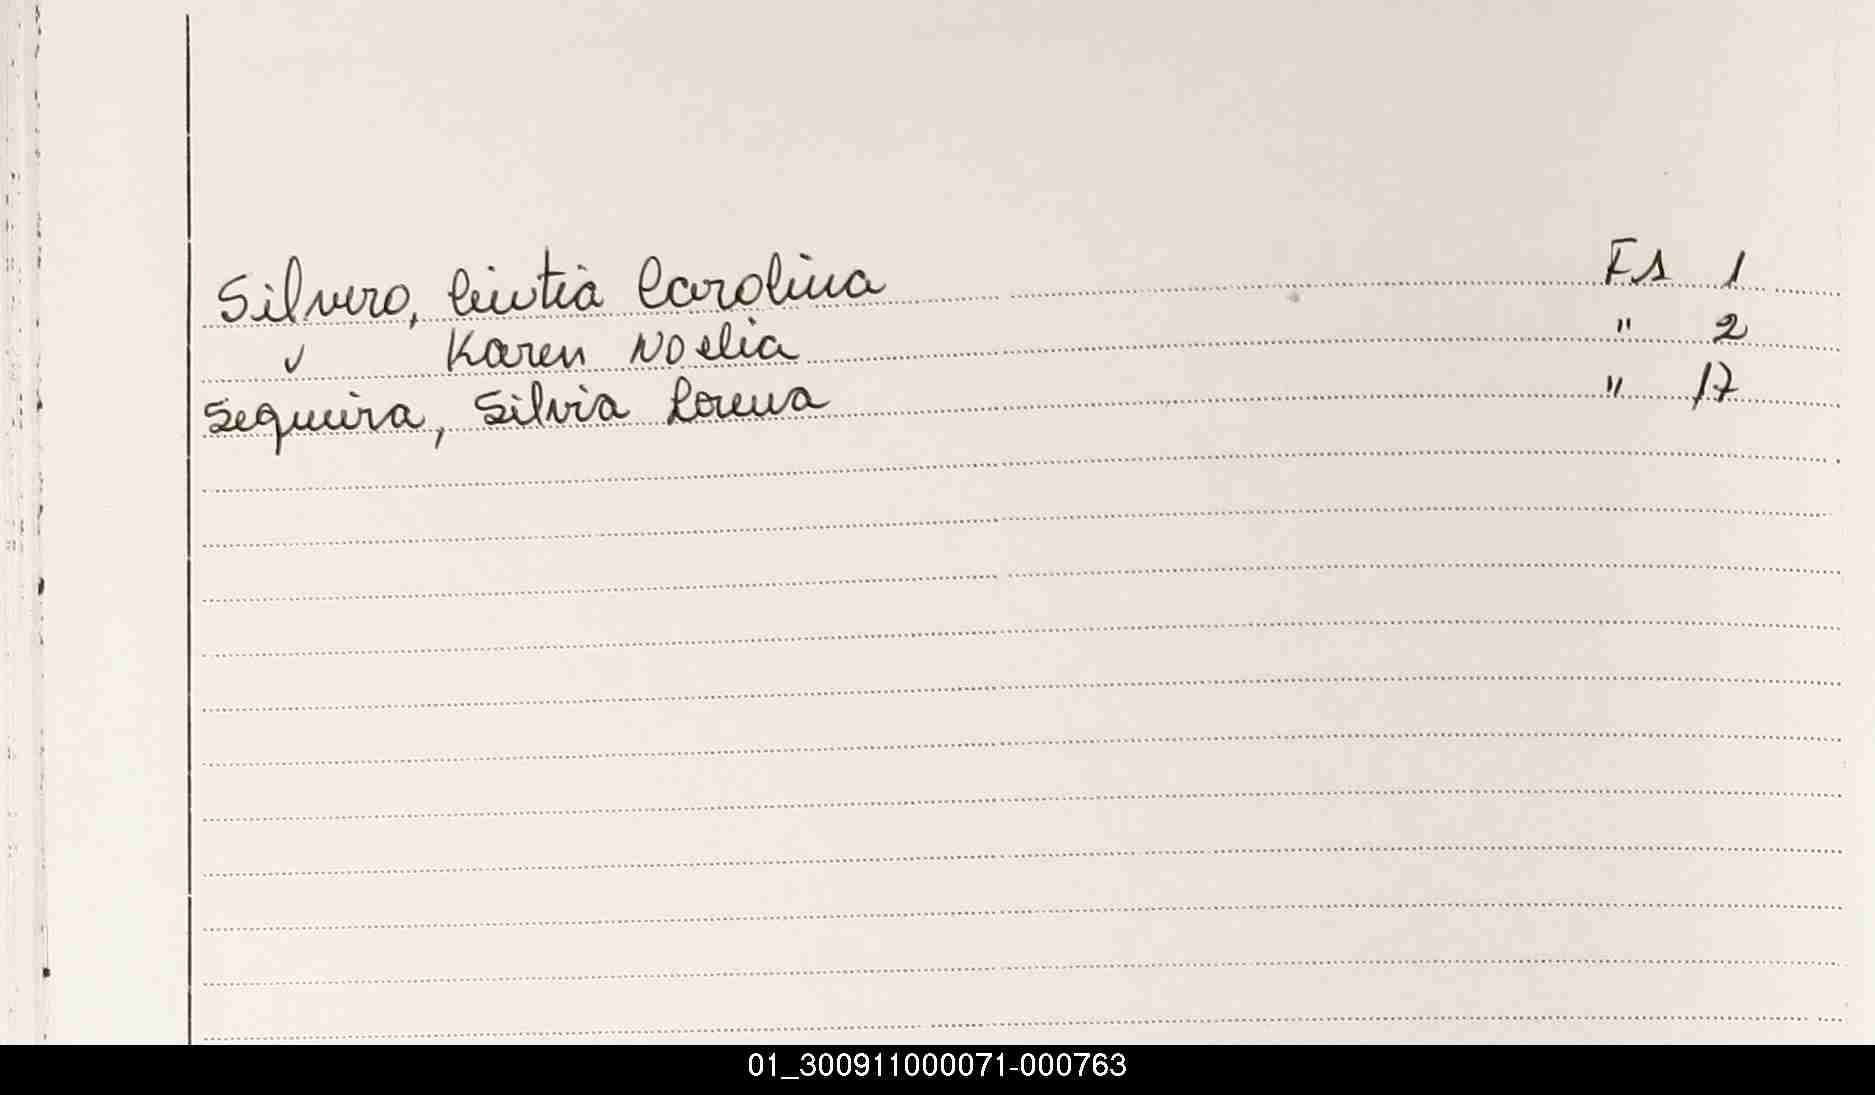 Silvero, Cintia Carolina Fs 1
" Karen Noelia " 2
Sequeira, Silvia Lorena " 17
01_300911000071-000763